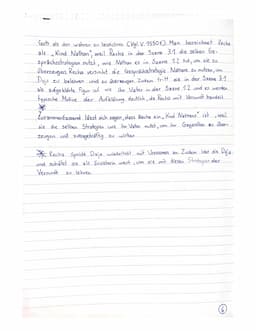 Gott als den wahren zu bezeichnen (Vgl. V. 1550 f.). Man bezeichnet Recha
als „Kind Nathan", weil Recha in der Szene 3.1 die selben Ge-
sprächsstrategien nutzt, wie Nathan es in Szene 1.2 tut, um sie zu
überzeugen. Recha versucht die Gesprächsstrategie Nathans zu nutzen, um
Daja zu belehren und zu überzeugen. Zudem tritt sie in der Szene 3.1
als aufgeklärte Figur auf wie ihr Vater in der Szene 1.2 und es werden
typische Motive der Aufklärung deutlich, da Recha mit Vernunft handelt.
*
Zusammenfassend lässt sich sagen, dass Recha ein „Kind Nathans" ist, weil
sie die selben Strategien wie ihr Vater nutzt, um ihr Gegenüber zu über-
zeugen und aussagekräftig zu wirken.
* Recha spricht Daja wiederholt mit Vornamen an. Zudem hat sie Daja
und schätzt sie als Erzieherin wert, um sie mit diesen Strategien der
Vernunft zu lehren.
6